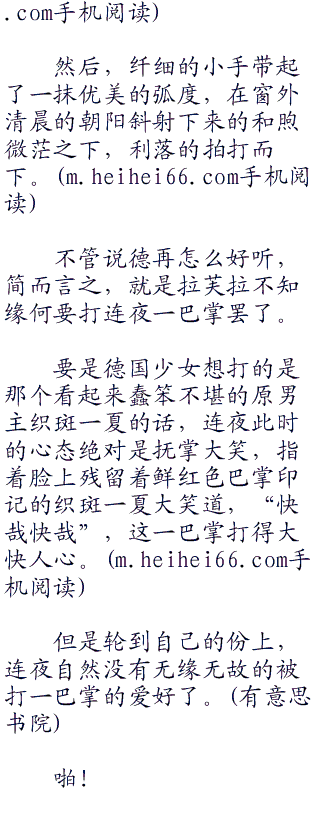 .com手机阅读)
然后，纤细的小手带起
了一抹优美的弧度，在窗外
清晨的朝阳斜射下来的和煦
微茫之下，利落的拍打而
下。(m.heihei66.com手机阅
读)
不管说德再怎么好听，
简而言之，就是拉芙拉不知
缘何要打连夜一巴掌罢了。
要是德国少女想打的是
那个看起来蠢笨不堪的原男
主织斑一夏的话，连夜此时
的心态绝对是抚掌大笑，指
着脸上残留着鲜红色巴掌印
记的织斑一夏大笑道，“快
哉快哉”，这一巴掌打得大
快人心。(m.heihei66.com手
机阅读)
但是轮到自己的份上，
连夜自然没有无缘无故的被
打一巴掌的爱好了。(有意思
书院)
啪！